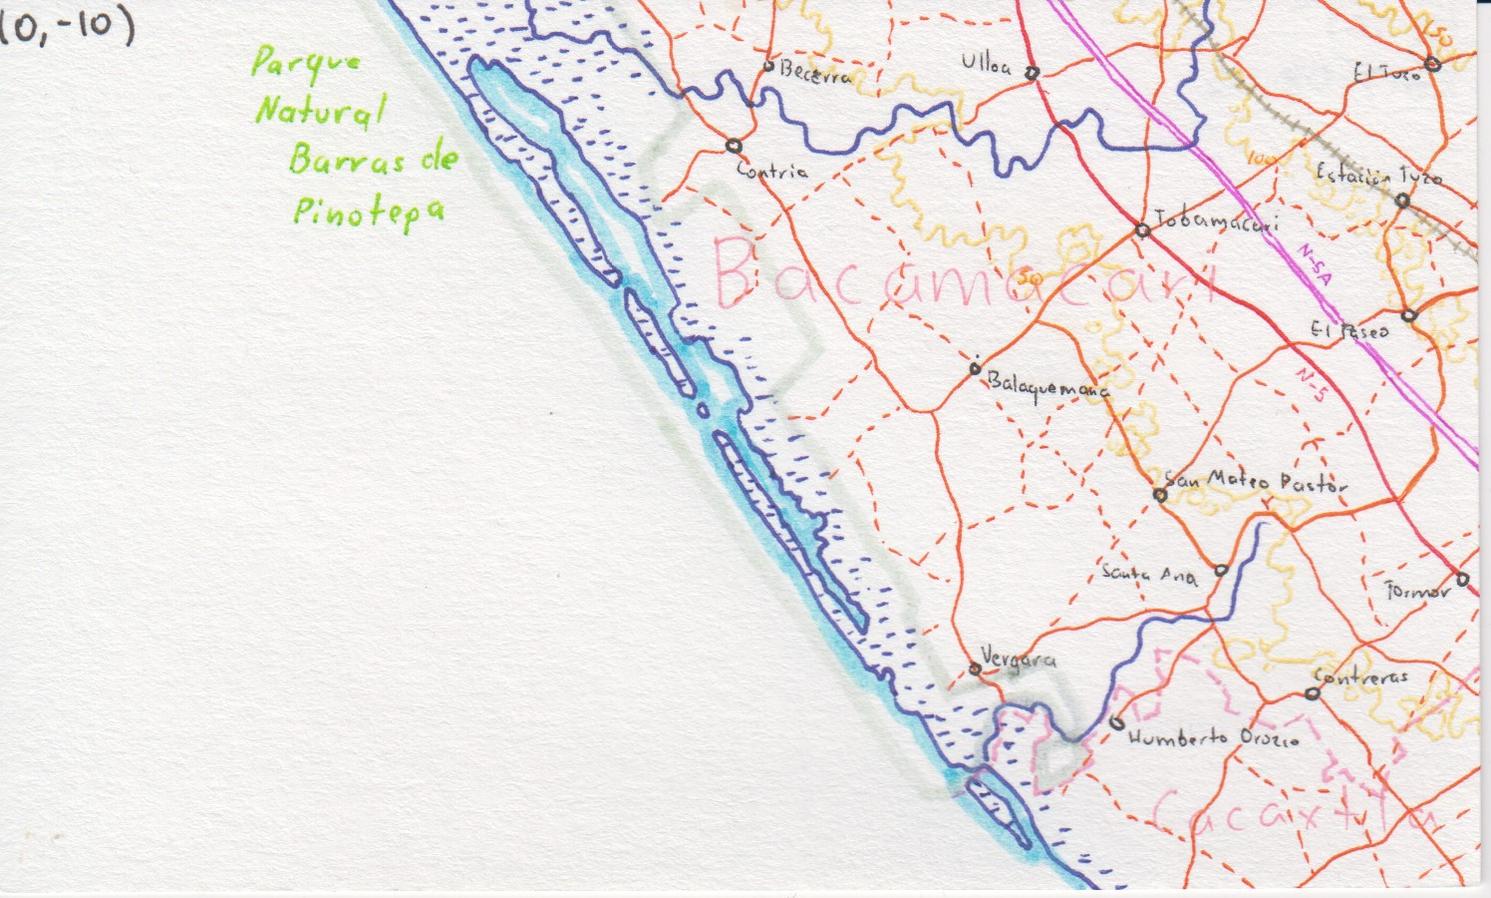 (0,-10)
Parque
Natural
Barras de
Pinotepa
Becerra
Ulloa
El Tuzo
150
Contria
100
Estación Tuzo
Tobamacari
Bacamacari
50
N-5A
El Paseo
Balaquemana
N-5
San Mateo Pastor
Santa Ana
Tormor
Vergara
Contreras
Humberto Orozco
Cacaxtla